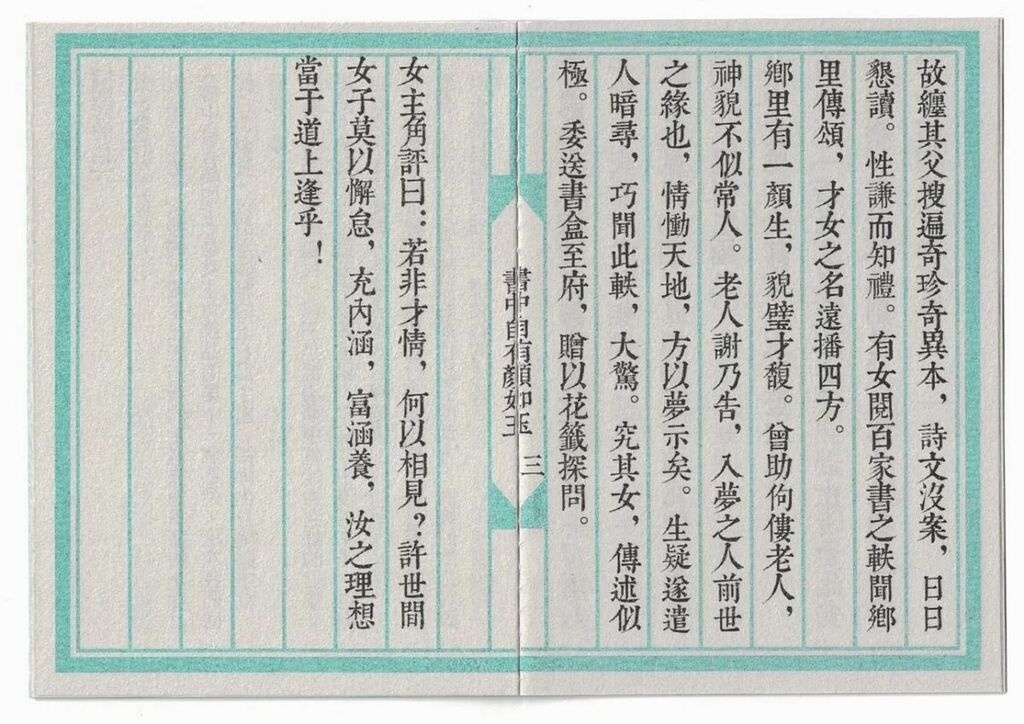 故纏其父搜遍奇珍奇異本，詩文沒案，日日
懇讀。性謙而知禮。有女閱百家書之軼聞鄉
里傳頌，才女之名遠播四方。
鄉里有一顏生，貌璧才馥。曾助佝僂老人，
神貌不似常人。老人謝乃告，入夢之人前世
之緣也，情慟天地，方以夢示矣。生疑遂遣
人暗尋，巧聞此軼，大驚。究其女，傳述似
極。委送書盒至府，贈以花籤探問。
書中自有顏如玉 三
女主角評曰：若非才情，何以相見？許世間
女子莫以懈怠，充內涵，富涵養，汝之理想
當于道上逢乎！